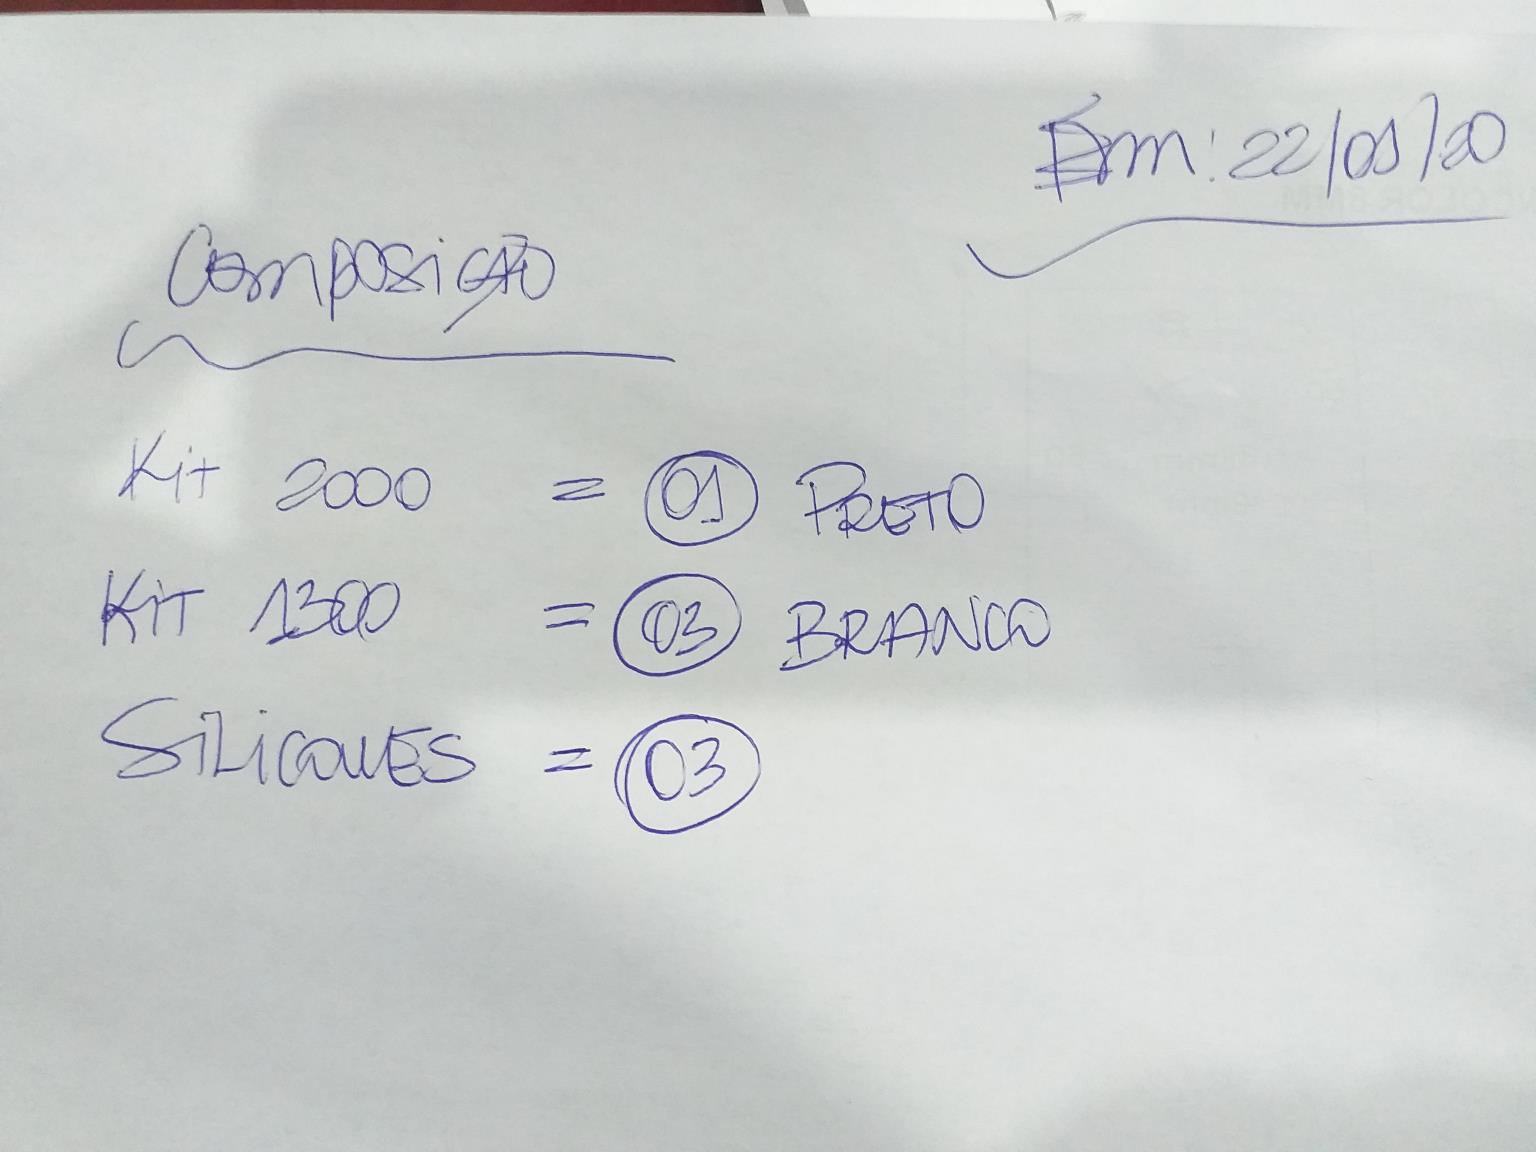 Em: 22/01/20
Composição
Kit 2000 = 01 PRETO
KiT 1300 = 03 BRANCO
SiLiCONES = 03